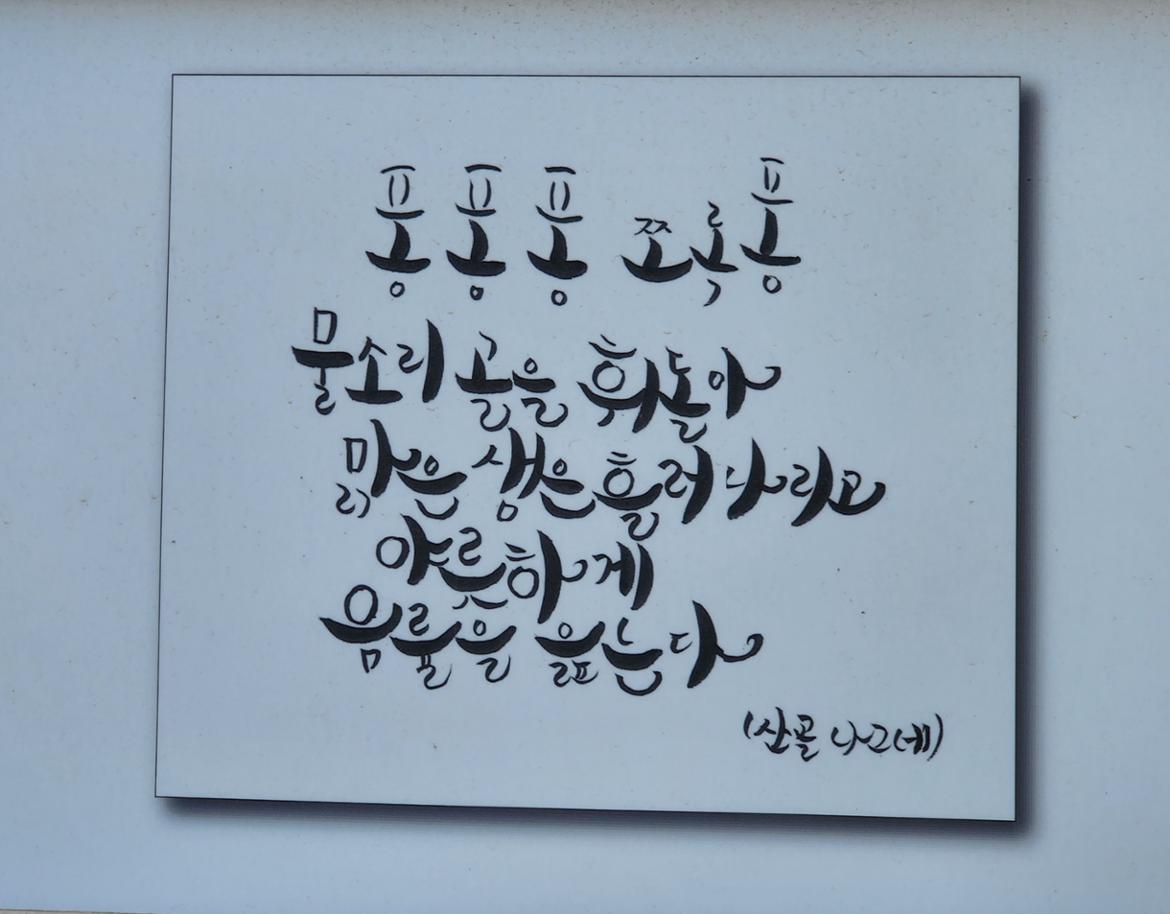 퐁퐁퐁 쪼록퐁
물소리 골을 휘돌아
맑은 샘은 흘러 나리고
야릇하게
음률을 읊는다
(산골 나그네)